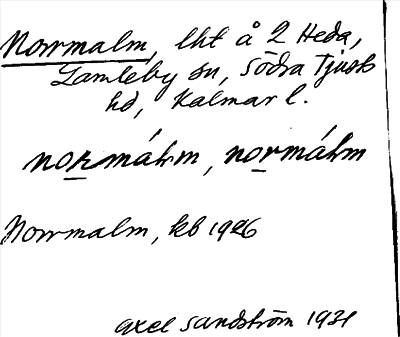 Norrmalm, lht å 2 Heda,
Gamleby sn, Södra Tjusts
hd, Kalmar l.
norrmáłm, normáłm
Norrmalm, kb 1926
Axel Sandström 1931